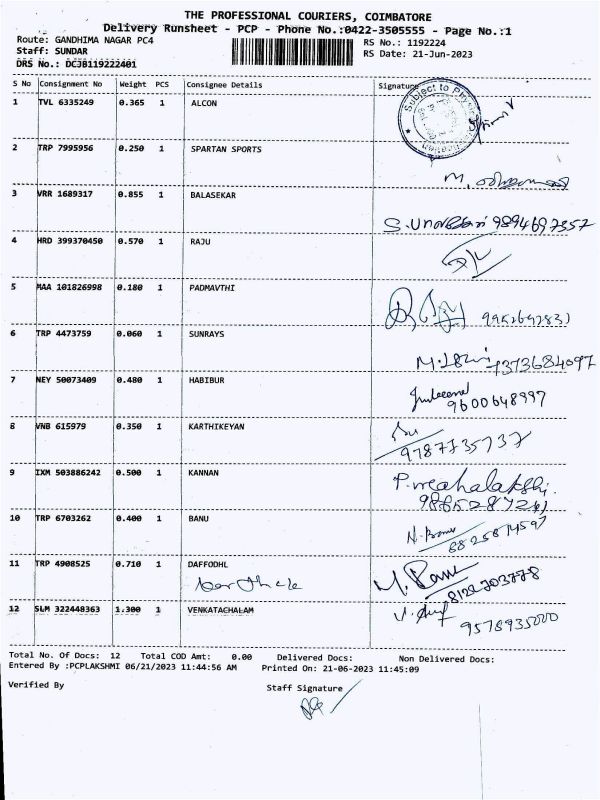 THE PROFESSIONAL COURIERS, COIMBATORE
Delivery Runsheet - PCP - Phone No.:0422-3505555 - Page No.:1
Route: GANDHIMA NAGAR PC4 RS No.: 1192224
Staff: SUNDAR RS Date: 21-Jun-2023
DRS No.: DCJB119222401
S No Consignment No Weight PCS Consignee Details Signature
Subject to Physical
1 TVL 6335249 0.365 1 ALCON
2 TRP 7995956 0.250 1 SPARTAN SPORTS
M.
3 VRR 1689317 0.855 1 BALASEKAR
9894697357
4 HRD 399370450 0.570 1 RAJU
5 MAA 101826998 0.180 1 PADMAVTHI
6 TRP 4473759 0.060 1 SUNRAYS
7373684097
7 NEY 50073409 0.480 1 HABIBUR
9600648997
8 VNB 615979 0.350 1 KARTHIKEYAN
9787735737
9 IXM 503886242 0.500 1 KANNAN
P. Mahalakshi.
10 TRP 6703262 0.400 1 BANU
N. Banu
11 TRP 4908525 0.710 1 DAFFODHL
8122703778
12 SLM 322448363 1.300 1 VENKATACHALAM
Total No. Of Docs: 12 Total COD Amt: 0.00 Delivered Docs: Non Delivered Docs:
Entered By :PCPLAKSHMI 06/21/2023 11:44:56 AM Printed On: 21-06-2023 11:45:09
Verified By Staff Signature